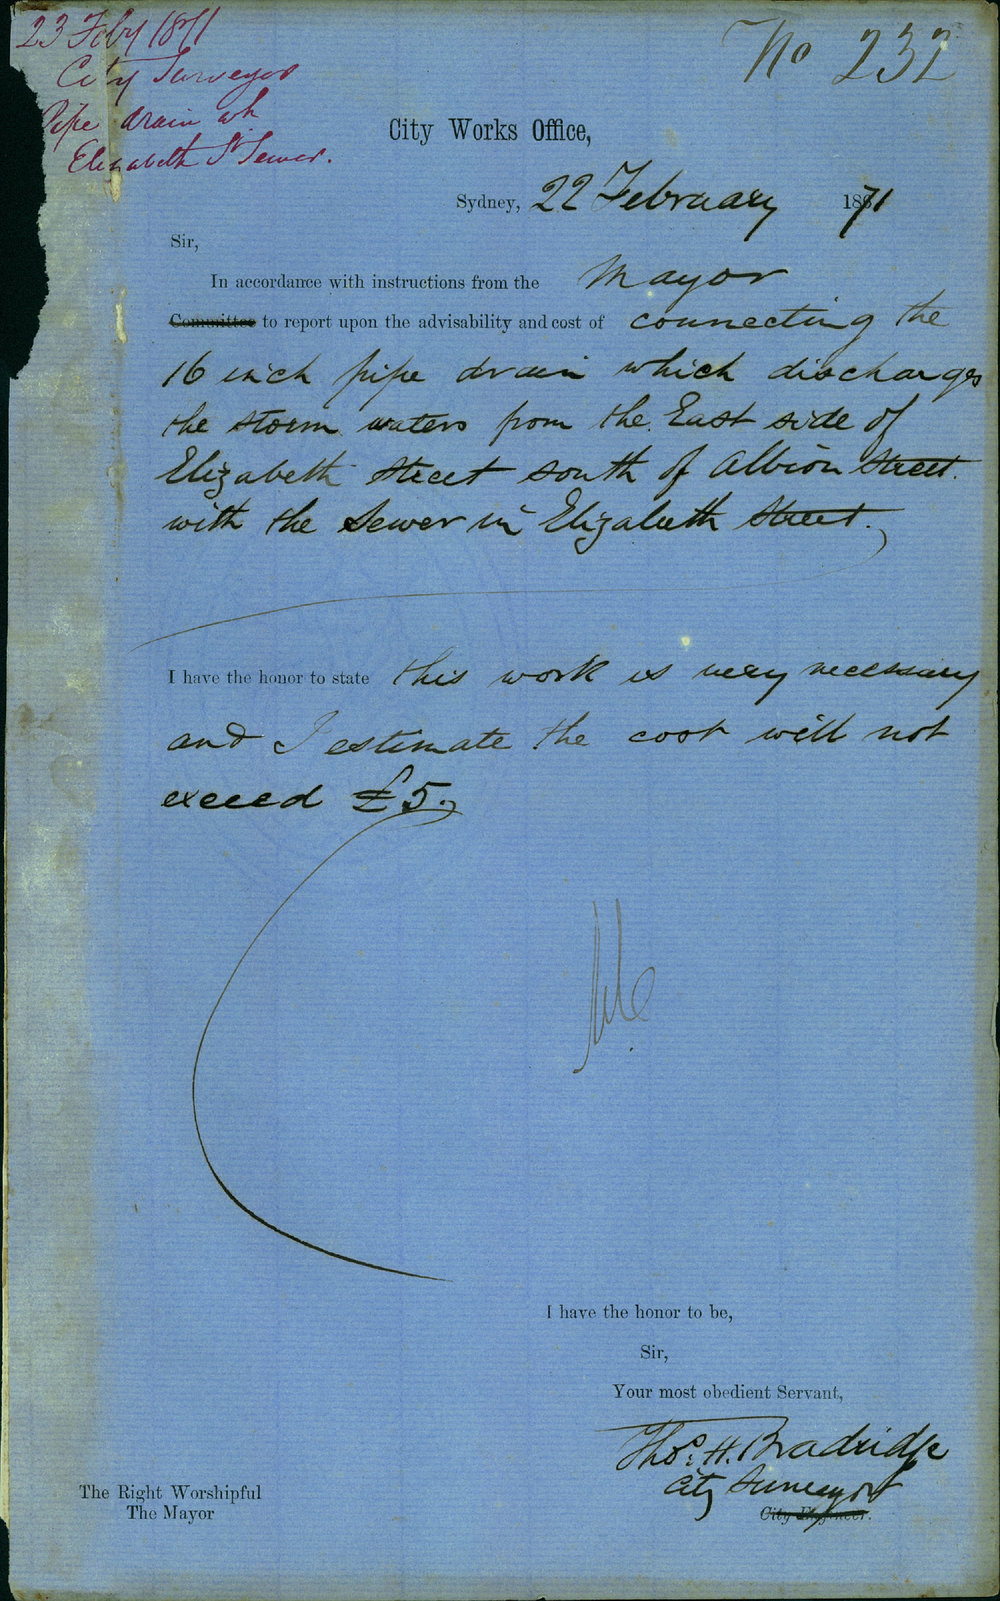 23 Feby 1871
City Surveyor
Pipe drain wh
Elizabeth St Sewer.
No 232
City Works Office,
Sydney, 22 February 1871
Sir,
In accordance with instructions from the Mayor
Committee to report upon the advisability and cost of connecting the
16 inch pipe drain which discharges
the storm waters from the East side of
Elizabeth Street south of Albion Street.
with the Sewer in Elizabeth Street.
I have the honor to state this work is very necessary
and I estimate the cost will not
exceed £5.
I have the honor to be,
Sir,
Your most obedient Servant,
Thos. H. Bradridge
City Surveyor
City Engineer.
The Right Worshipful
The Mayor